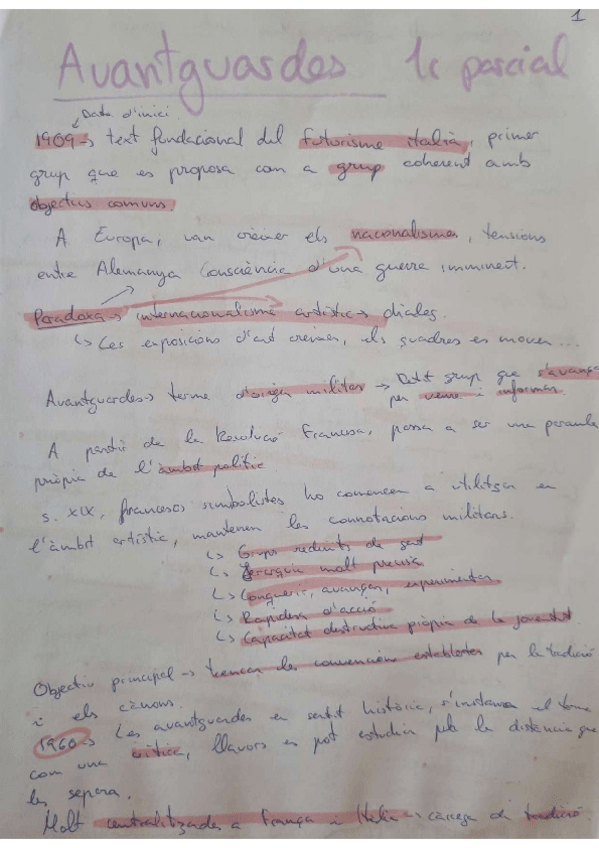 1
Avantguardes 1r parcial
Data d'inici
1909 → text fundacional del futurisme italià, primer
grup que es proposa com a grup coherent amb
objectius comuns.
A Europa, van créixer els nacionalismes, tensions
entre Alemanya Consciència d'una guerra imminent.
Paradoxa → internacionalisme artístic →
↳ Les exposicions d'art creixen, els quadres es mouen...
Avantguardes → terme d'origen militar → Petit grup que s'avança
per veure i informar.
A partir de la Revolució Francesa, passa a ser una paraula
pròpia de l'àmbit polític
s. XIX, francesos simbolistes ho comencen a utilitzar en
l'àmbit artístic, mantenen les connotacions militars.
↳ Grups reduïts de gent
↳ Jerarquia molt precisa
↳ Conquerir, avançar, experimentar
↳ Rapidesa d'acció
↳ Capacitat destructiva pròpia de la joventut
Objectiu principal → trencar les convencions establertes per la tradició
i els cànons.
1960 → Les avantguardes en sentit històric, s'instaura el terme
com una crítica, llavors es pot estudiar per la distància que
les separa.
Molt centralitzades a França i Itàlia → càrrega de tradició.